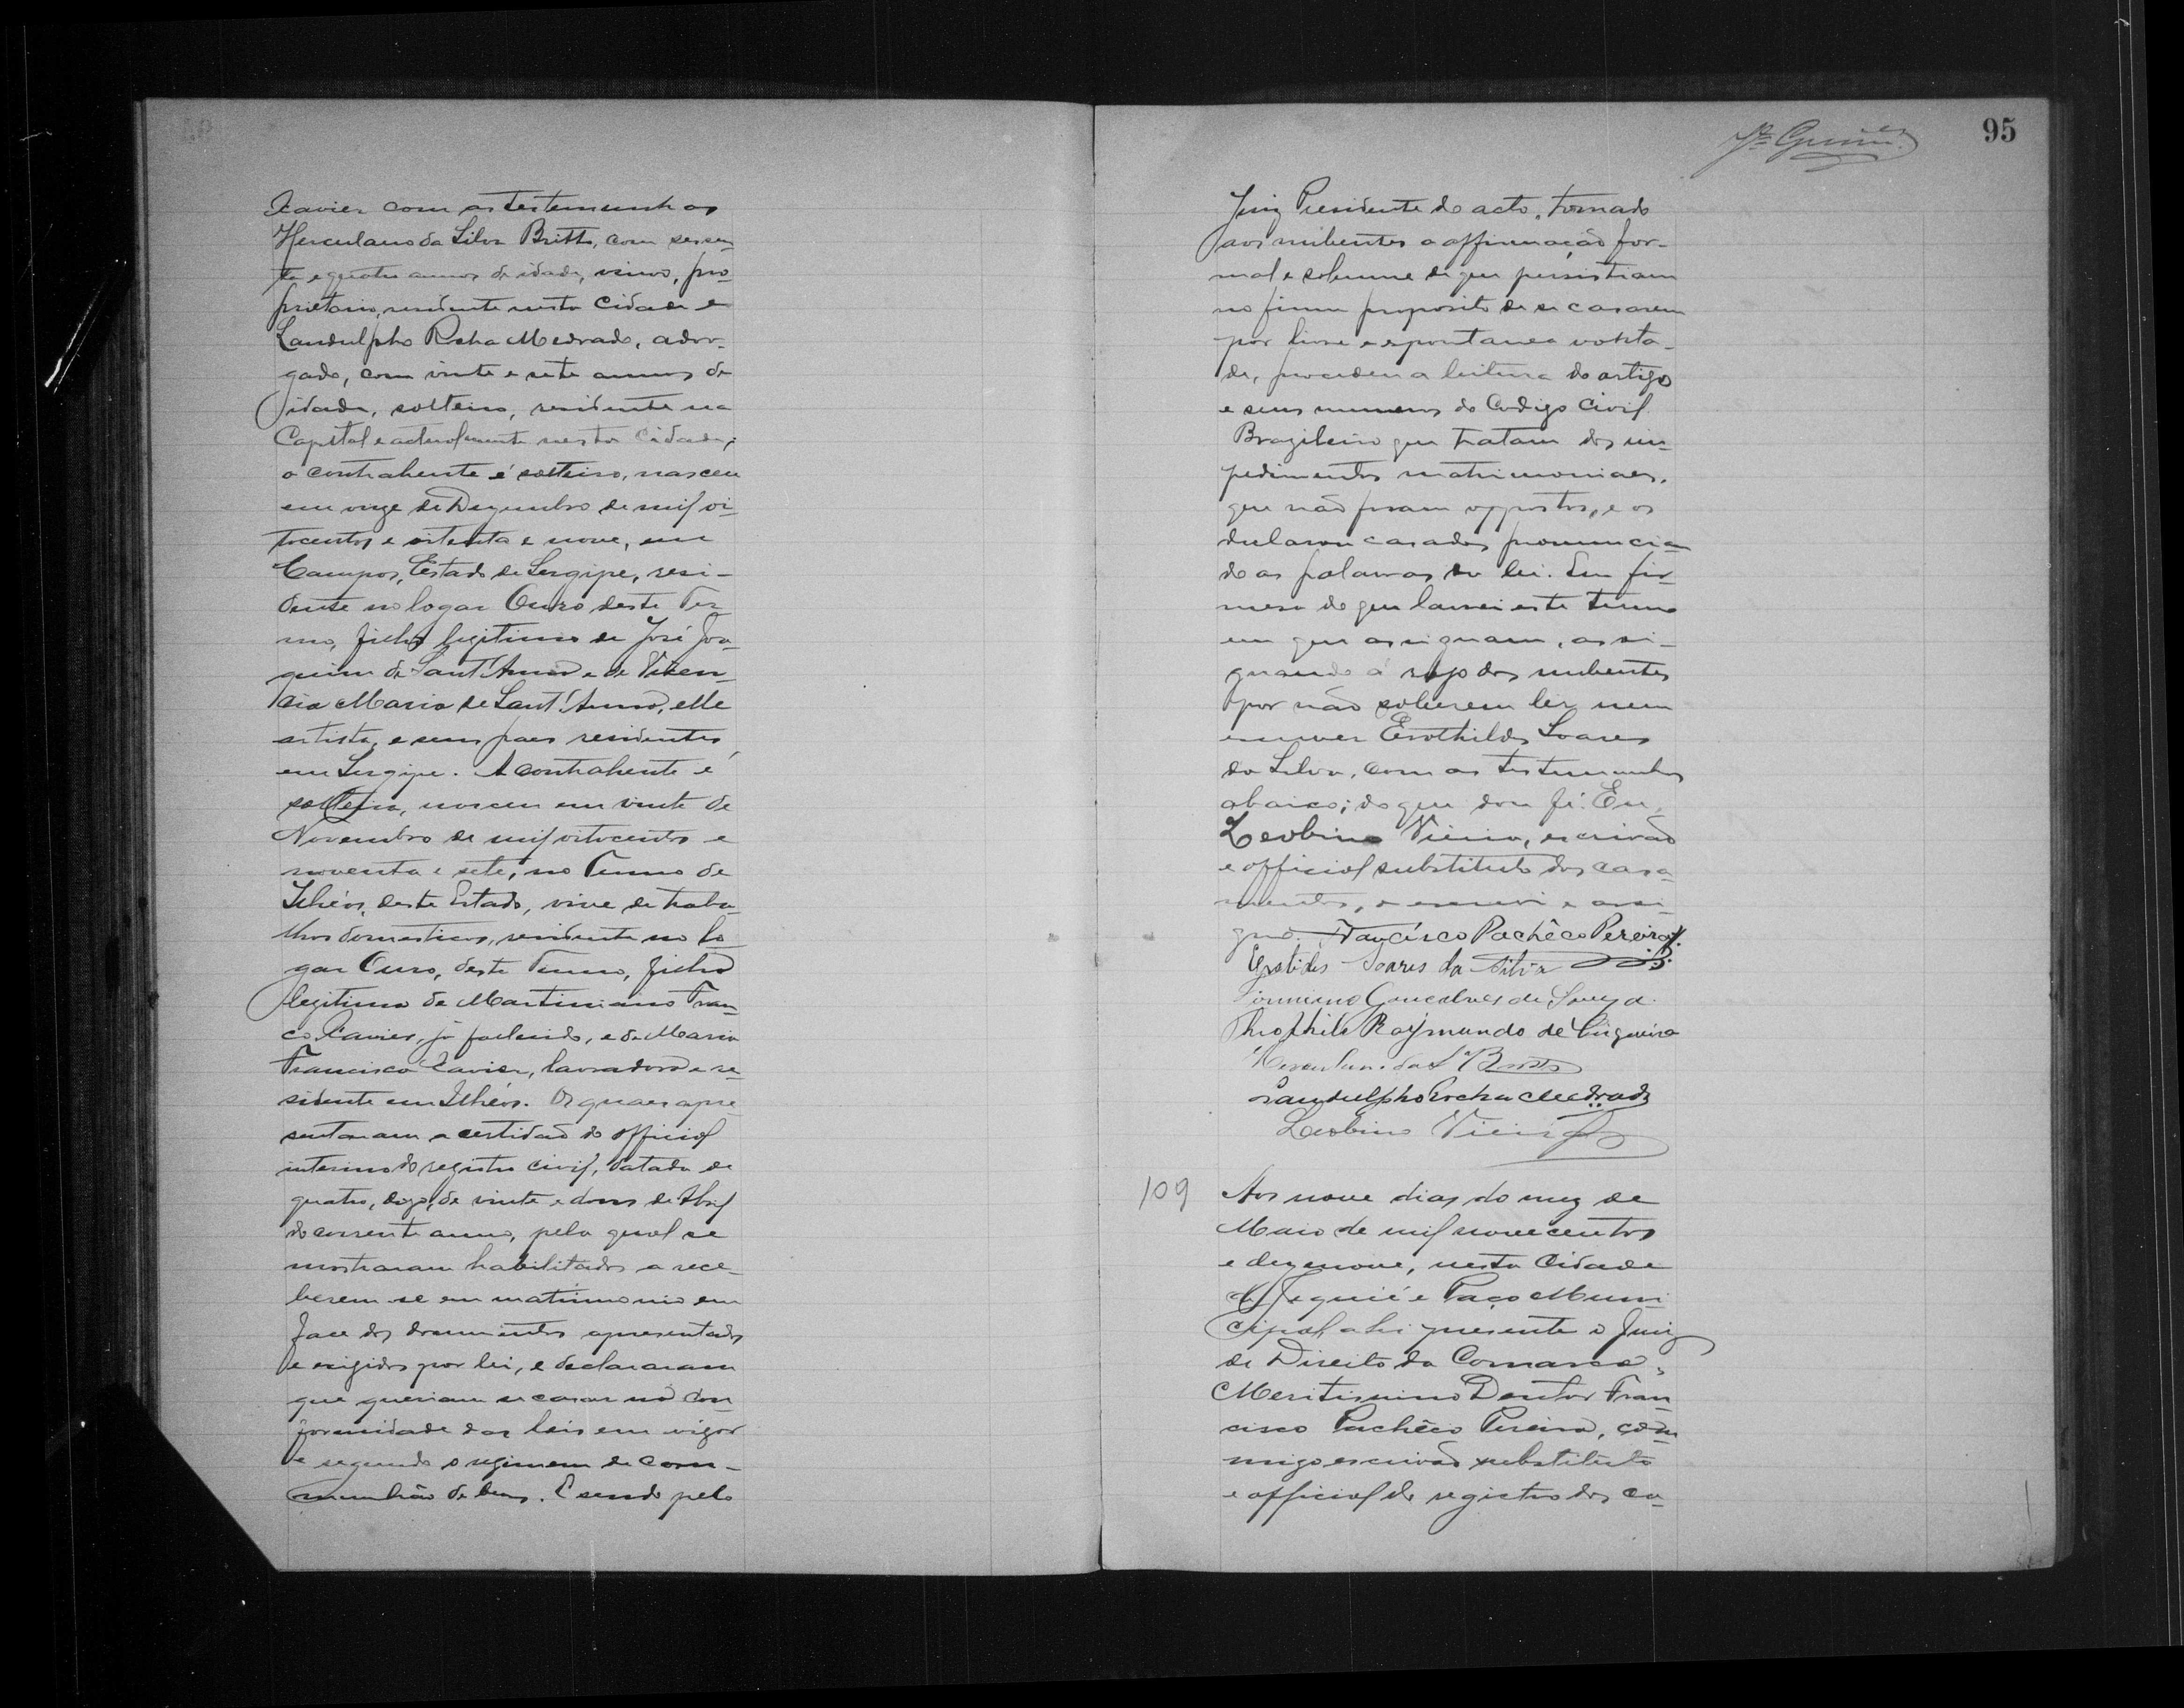 Xavier com as testemunhas
Herculano da Silva Britto, com sessen-
ta e quatro annos de idade, viuvo, pro-
prietario, residente nesta cidade e
Landulpho Rocha Medrado, advo-
gado, com vinte e sete annos de
idade, solteiro, residente na
Capital e actualmente nesta Cidade;
o contrahente é solteiro, nasceu
em onze de Dezembro de mil oi-
tocentos e oitenta e nove, em
Campos, Estado de Sergipe, resi-
dente no logar Ouro deste Ter-
mo, filho legitimo de José Joa-
quim de Sant'Anna e de Vicen-
cia Maria de Sant'Anna, elle
artista, e seus paes residentes
em Sergipe. A contrahente é
solteira, nasceu em vinte de
Novembro de mil oitocentos e
noventa e sete, no Termo de
Ilhéos, deste Estado, vive de traba-
lhos domesticos, residente no lo-
gar Ouro, deste Termo, filha
legitima de Martiniano Fran-
co Xavier, já fallecido, e de Maria
Francisca Xavier, lavradora e re-
sidente em Ilhéos. Os quaes apre-
sentaram a certidão do official
interino do registro civil, datada de
quatro, digo, de vinte e dous de Abril
do corrente anno, pela qual se
mostraram habilitados a rece-
berem-se em matrimonio em
face dos documentos apresentados
e exigidos por lei, e declararam
que queriam se casar na con-
formidade das leis em vigor
e segundo o regimem de com-
munhão de bens. E sendo pelo
95
Juiz Presidente do acto, tomado
aos nubentes a affirmação for-
mal e solemne de que persistiam
no firme proposito de se casarem
por livre e espontanea vonta-
de, procedeu a leitura do artigo
e seus numeros do Codigo Civil
Brazileiro que tratam dos im-
pedimentos matrimoniaes,
que não foram oppostos, e os
declarou casados pronuncian-
do as palavras da lei. Em fir-
mesa do que lavrei este termo
em que assignam, assi-
gnando á rogo dos nubentes
por não saberem ler nem
escrever Erothildes Soares
da Silva, com as testemunhas
abaixo; do que dou fé. Eu,
Leobino Vieira, escrivão
e official substituto dos casa-
mentos, o escrevi e assi-
gno. Francisco Pachêco Pereira.
Erotides Soares da Silva
Firmino Gonçalves de Souza.
Theophilo Raymundo de Cirqueira
Herculano da S. Britto
Landulpho Rocha Medrado
Leobino Vieira
109 Aos nove dias do mez de
Maio de mil novecentos
e dezenove, nesta Cidade
de Jequié e Paço Muni-
cipal, ahi presente o Juiz
de Direito da Comarca,
Meritissimo Doutor Fran-
cisco Pachêco Pereira, com-
migo escrivão substituto
e official do registro dos ca-